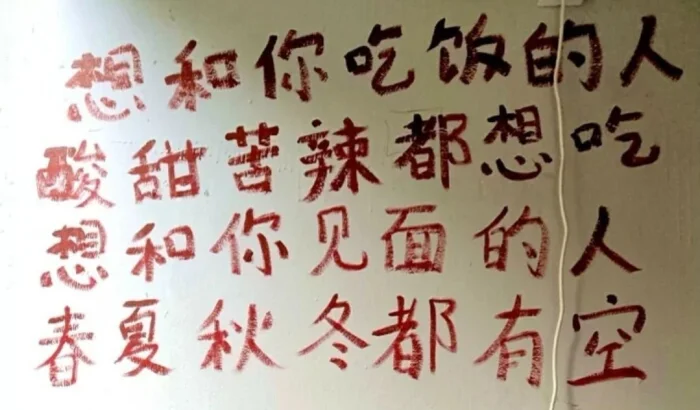 想和你吃饭的人
酸甜苦辣都想吃
想和你见面的人
春夏秋冬都有空